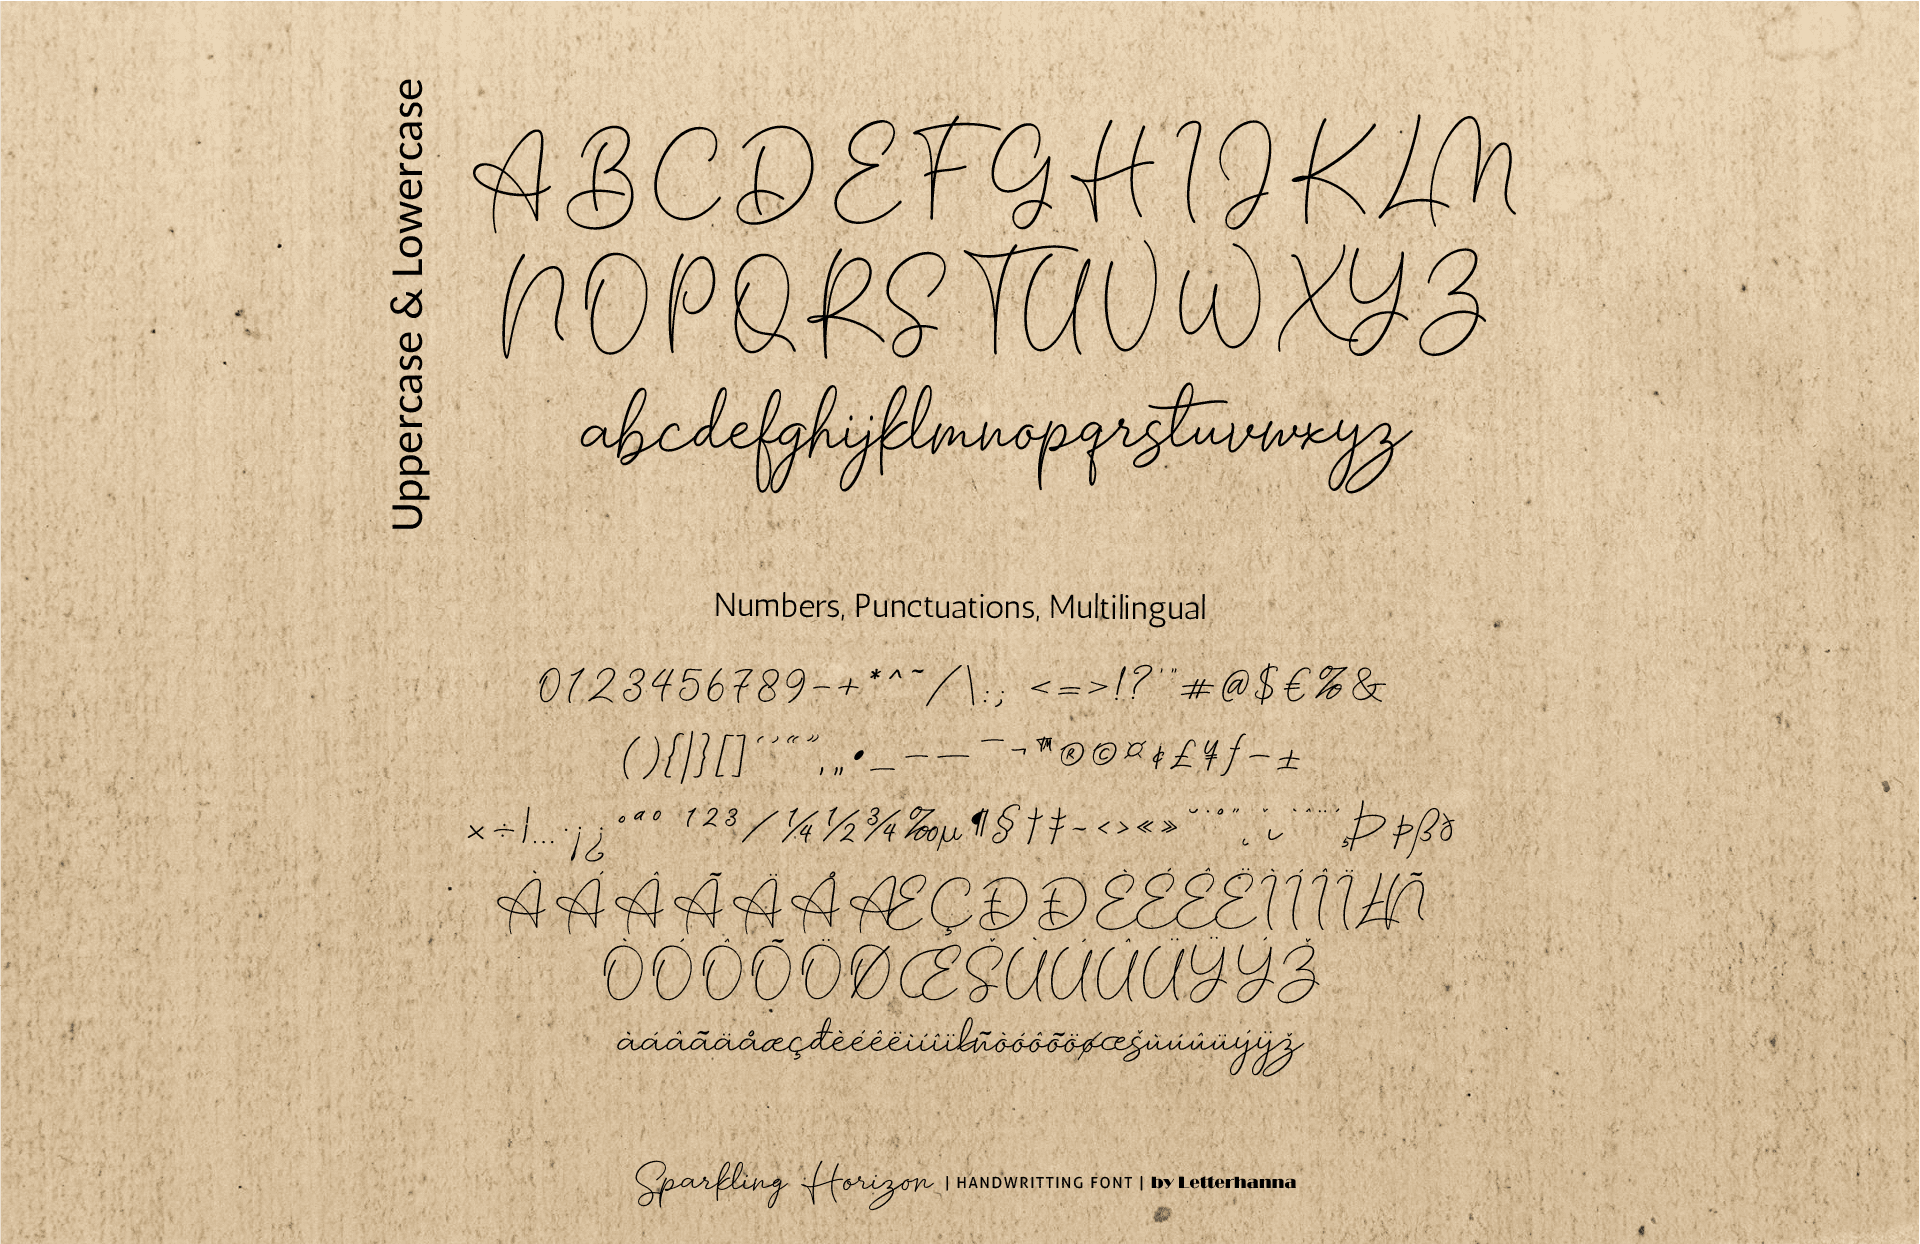 Uppercase & Lowercase
A B C D E F G H I J K L M
N O P Q R S T U V W X Y Z
abcdefghijklmnopqrstuvwxyz
Numbers, Punctuations, Multilingual
0123456789-+*^~/\:; <=>!?'"#@$€%&
(){|}[]‘’“”‚„•_–—¯¬™®©¤¢£¥ƒ−±
×÷|…·¡¿°ªº¹²³⁄¼½¾‰µ¶§†‡~‹›«»˘˙˚˝˛ˇ`^¨´¸Þþßð
ÀÁÂÃÄÅÆÇĐÐÈÉÊËÌÍÎÏŁÑ
ÒÓÔÕÖØŒŠÙÚÛÜŸÝŽ
àáâãäåæçđèéêëìíîïłñòóôõöøœšùúûüýÿž
Sparkling Horizon | HANDWRITTING FONT | by Letterhanna